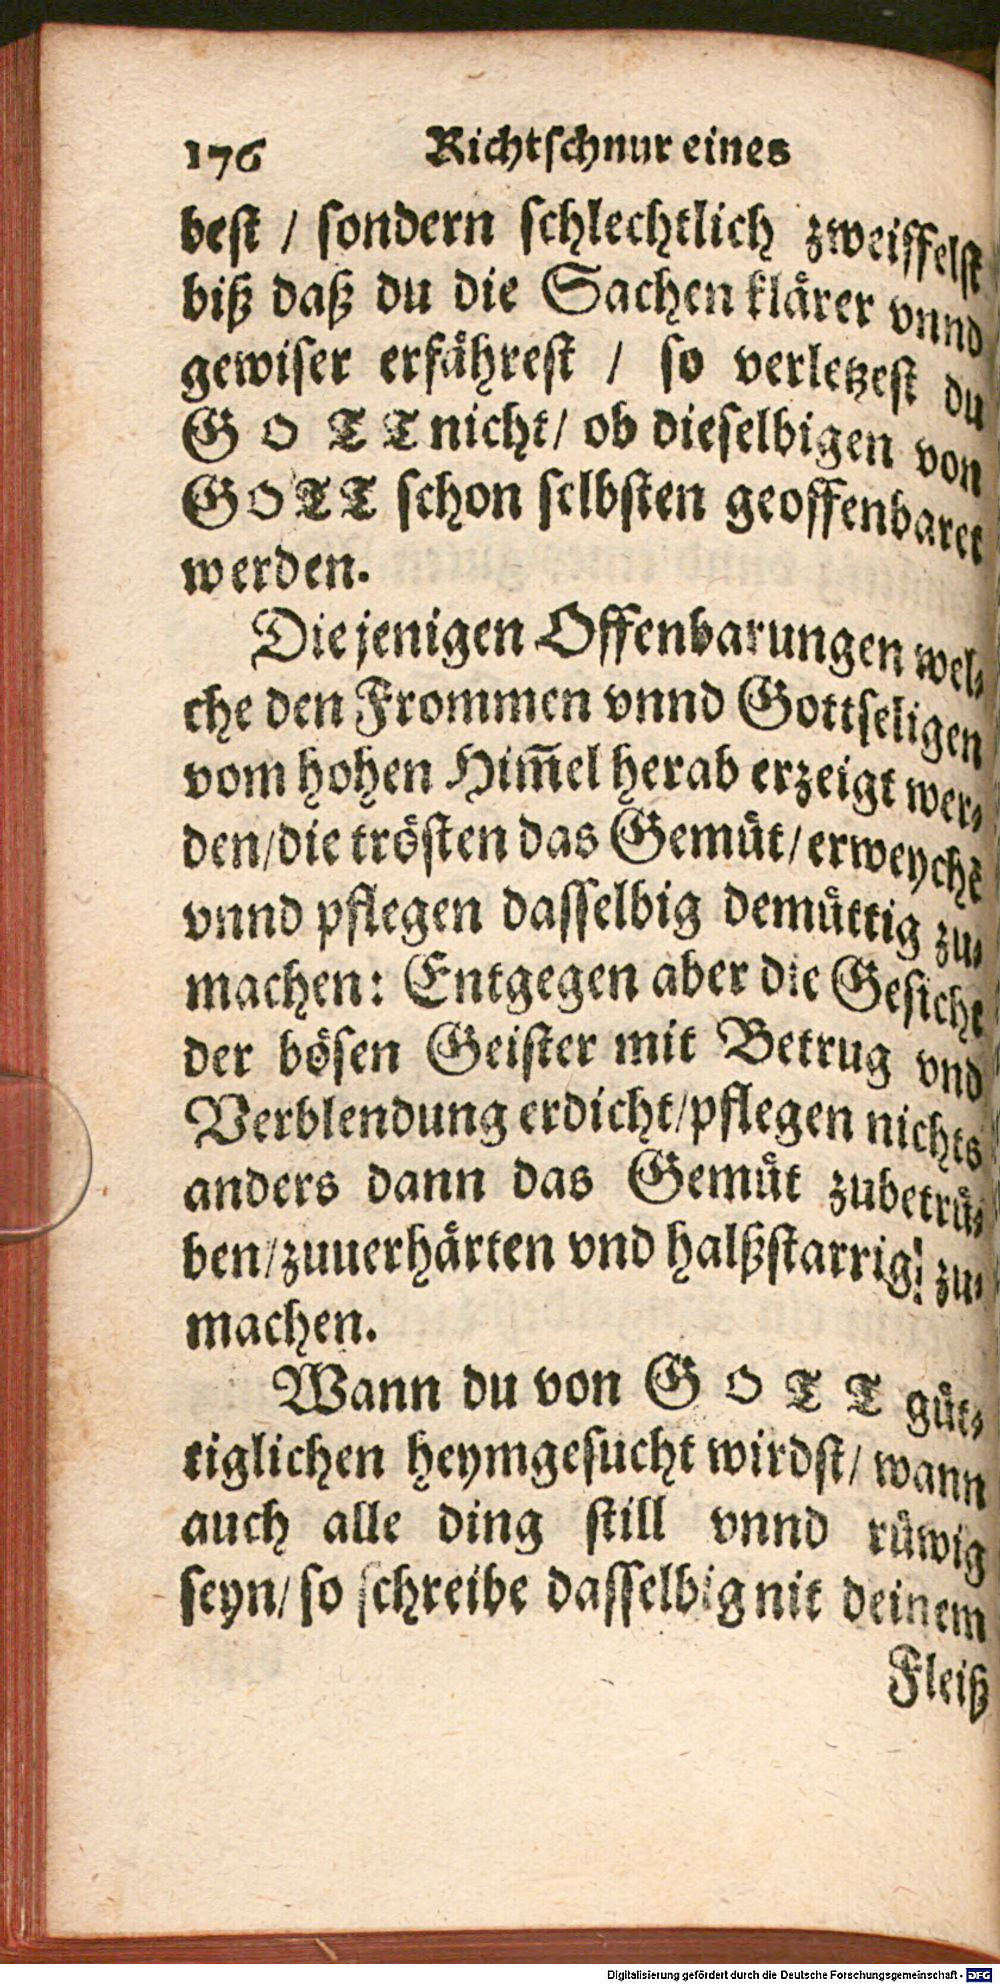 176 Richtschnur eines
best / sondern schlechtlich zweiffelst
biß daß du die Sachen klärer vnnd
gewiser erfährest / so verletzest du
G O T T nicht / ob dieselbigen von
GOTT schon selbsten geoffenbaret
werden.
Diejenigen Offenbarungen wel⸗
che den Frommen vnnd Gottseligen
vom hohen Him̅el herab erzeigt wer⸗
den / die trösten das Gemüt / erweychẽ
vnnd pflegen dasselbig demüttig zu⸗
machen: Entgegen aber die Gesicht
der bösen Geister mit Betrug vnd
Verblendung erdicht / pflegen nichts
anders dann das Gemüt zubetrü⸗
ben / zuuerhärten vnd halßstarrig zu⸗
machen.
Wann du von G O T T güt⸗
tiglichen heymgesucht wirdst / wann
auch alle ding still vnnd rüwig
seyn / so schreibe dasselbig nit deinem
Fleiß
Digitalisierung gefördert durch die Deutsche Forschungsgemeinschaft - DFG